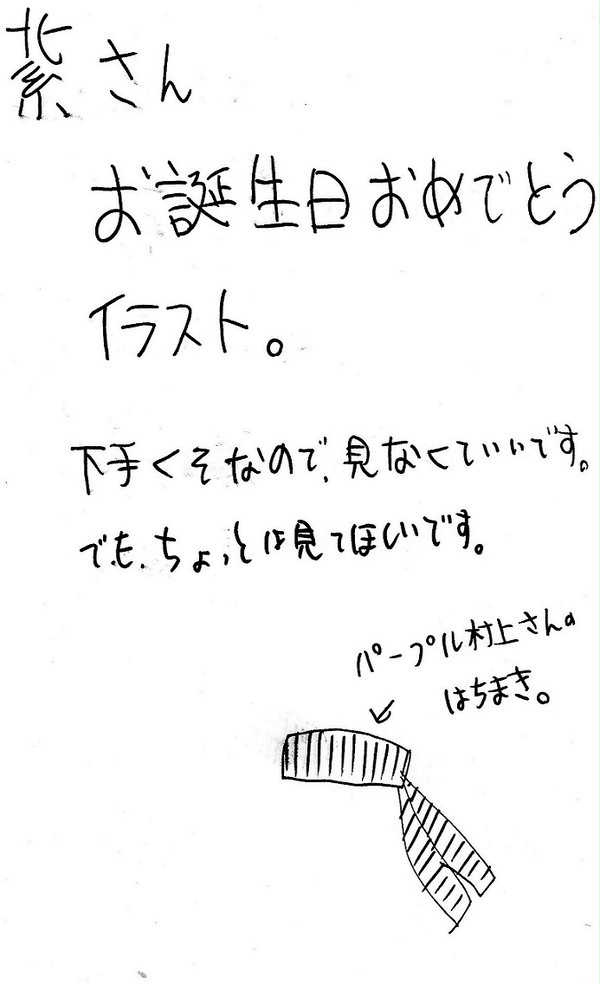 紫さん
お誕生日おめでとう
イラスト。
下手くそなので、見なくていいです。
でも、ちょっとは見てほしいです。
パープル村上さんの
はちまき。